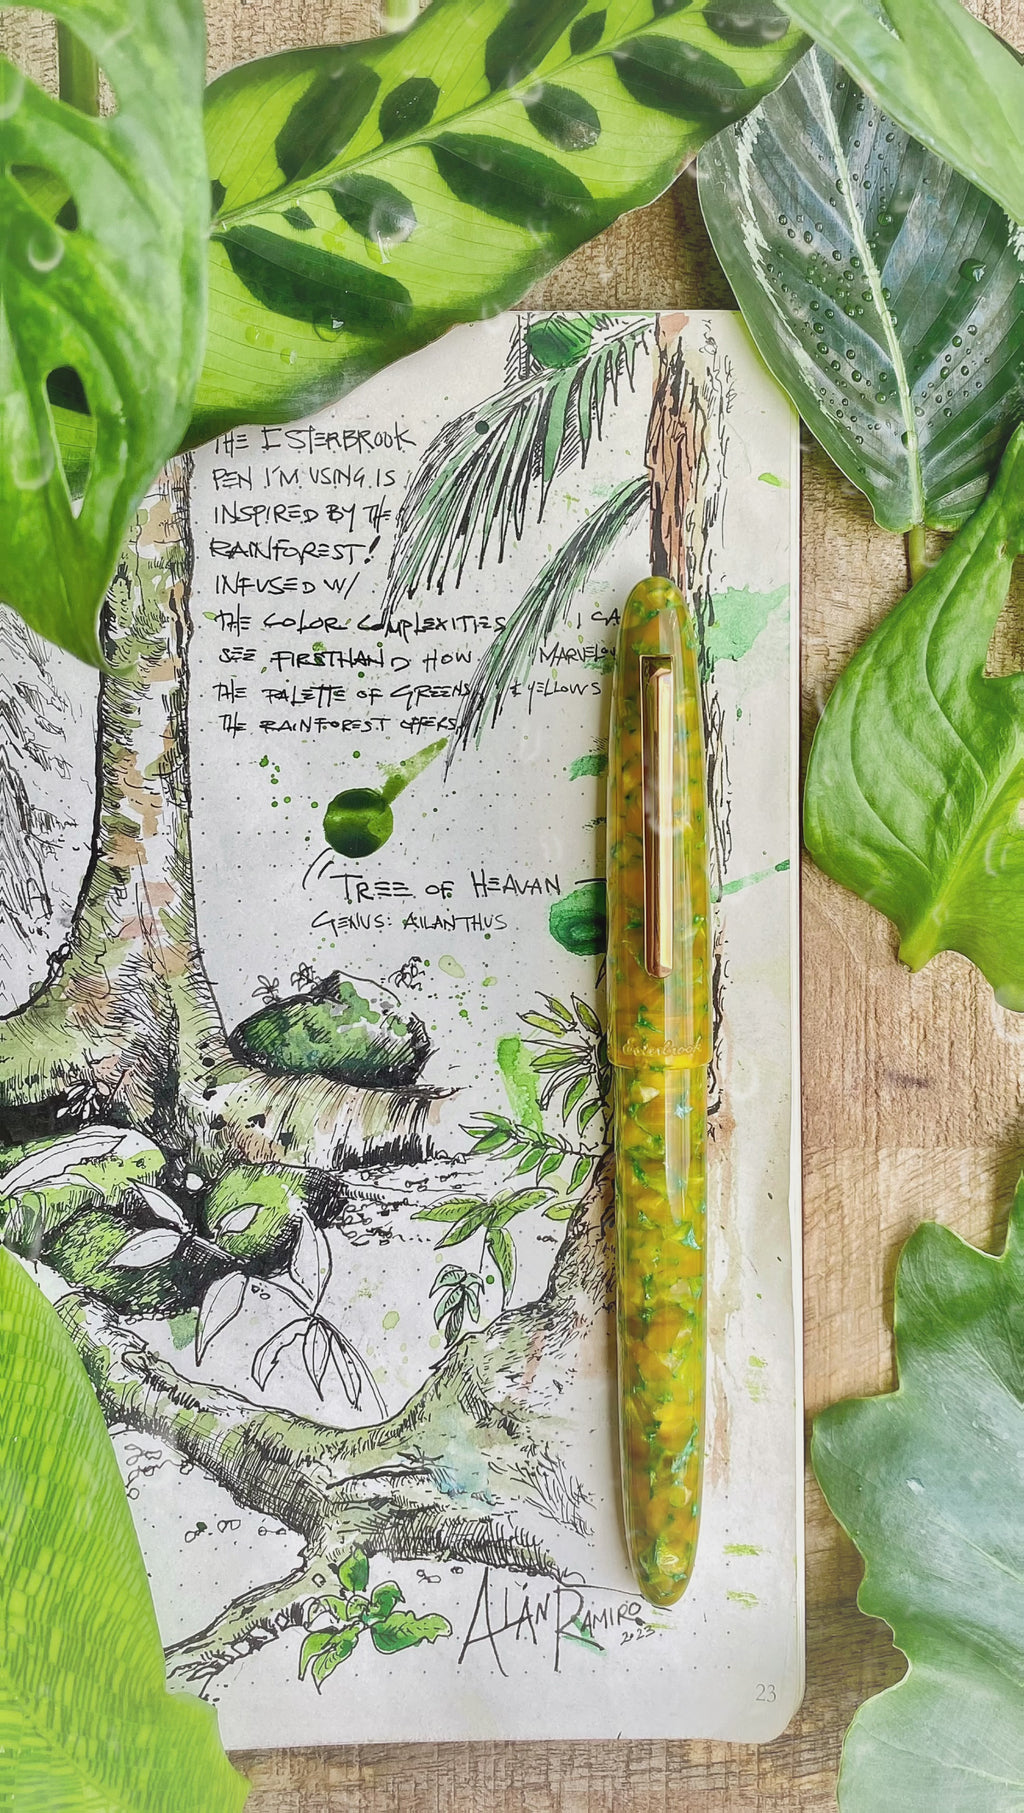 THE ESTERBROOK
PEN I'M USING IS
INSPIRED BY THE
RAINFOREST!
INFUSED W/
THE COLOR COMPLEXITIES I CA
SEE FIRSTHAND HOW MARVELOU
THE PALETTE OF GREENS & YELLOWS
THE RAINFOREST OFFERS.
TREE OF HEAVAN
GENUS: AILANTHUS
Esterbrook
ALAN RAMIRO
2023
23